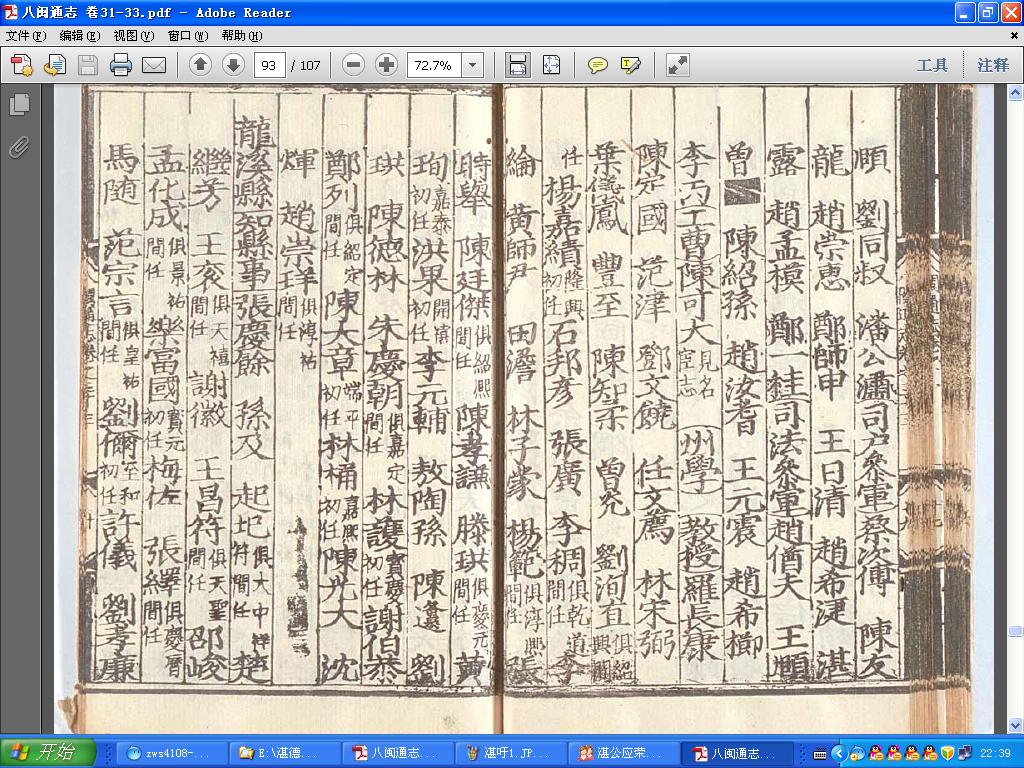 八闽通志 卷31-33.pdf - Adobe Reader
文件(F) 编辑(E) 视图(V) 窗口(W) 帮助(H)
93 / 107 72.7% 工具 注释
順 劉同叔 潘公 司户參軍蔡次傅 陳友
龍 趙崇恵 鄭師申 王日清 趙希 湛
露 趙孟 鄭一 司法參軍趙 夫 王
曾 陳紹孫 趙汝 王元震 趙希
李丙 工曹陳可大 見名宦志 州學 教授羅長康
陳定國 范津 鄧文饒 任文薦 林宋弼
葉儀鳳 豐至 陳知柔 曾 劉洵直 俱紹興間
任 楊嘉績 隆興初任 石邦彦 張廣 李稠 俱乾道間任 李
綸 黄師尹 田澹 林子蒙 楊範 俱淳熙間任 張
時舉 陳廷傑 俱紹熙間任 陳孝謙 滕珙 俱慶元間任 黄
珣 嘉泰初任 洪果 開禧初任 李元輔 敖陶孫 陳 劉
珙 陳德林 朱慶朝 俱嘉定間任 林護 寶慶初任 謝伯恭
鄭列 俱紹定間任 陳大章 端平初任 林桶 嘉熙初任 陳光大 沈
煇 趙崇 俱淳祐間任
龍溪縣 知縣事 張慶餘 孫及 起圯 俱大中祥符間任 楚
繼芳 王亥 俱天禧間任 謝微 王昌符 俱天聖間任 邵峻
孟化成 俱景祐間任 樂富國 寶元初任 梅佐 張繹 俱慶曆間任
馬随 范宗言 俱皇祐間任 劉爾 至和初任 許儀 劉孝廉
开始 zws4108-... E:\湛德... 八闽通志... 湛吁1.JP... 湛公应荣... 八闽通志... 22:39